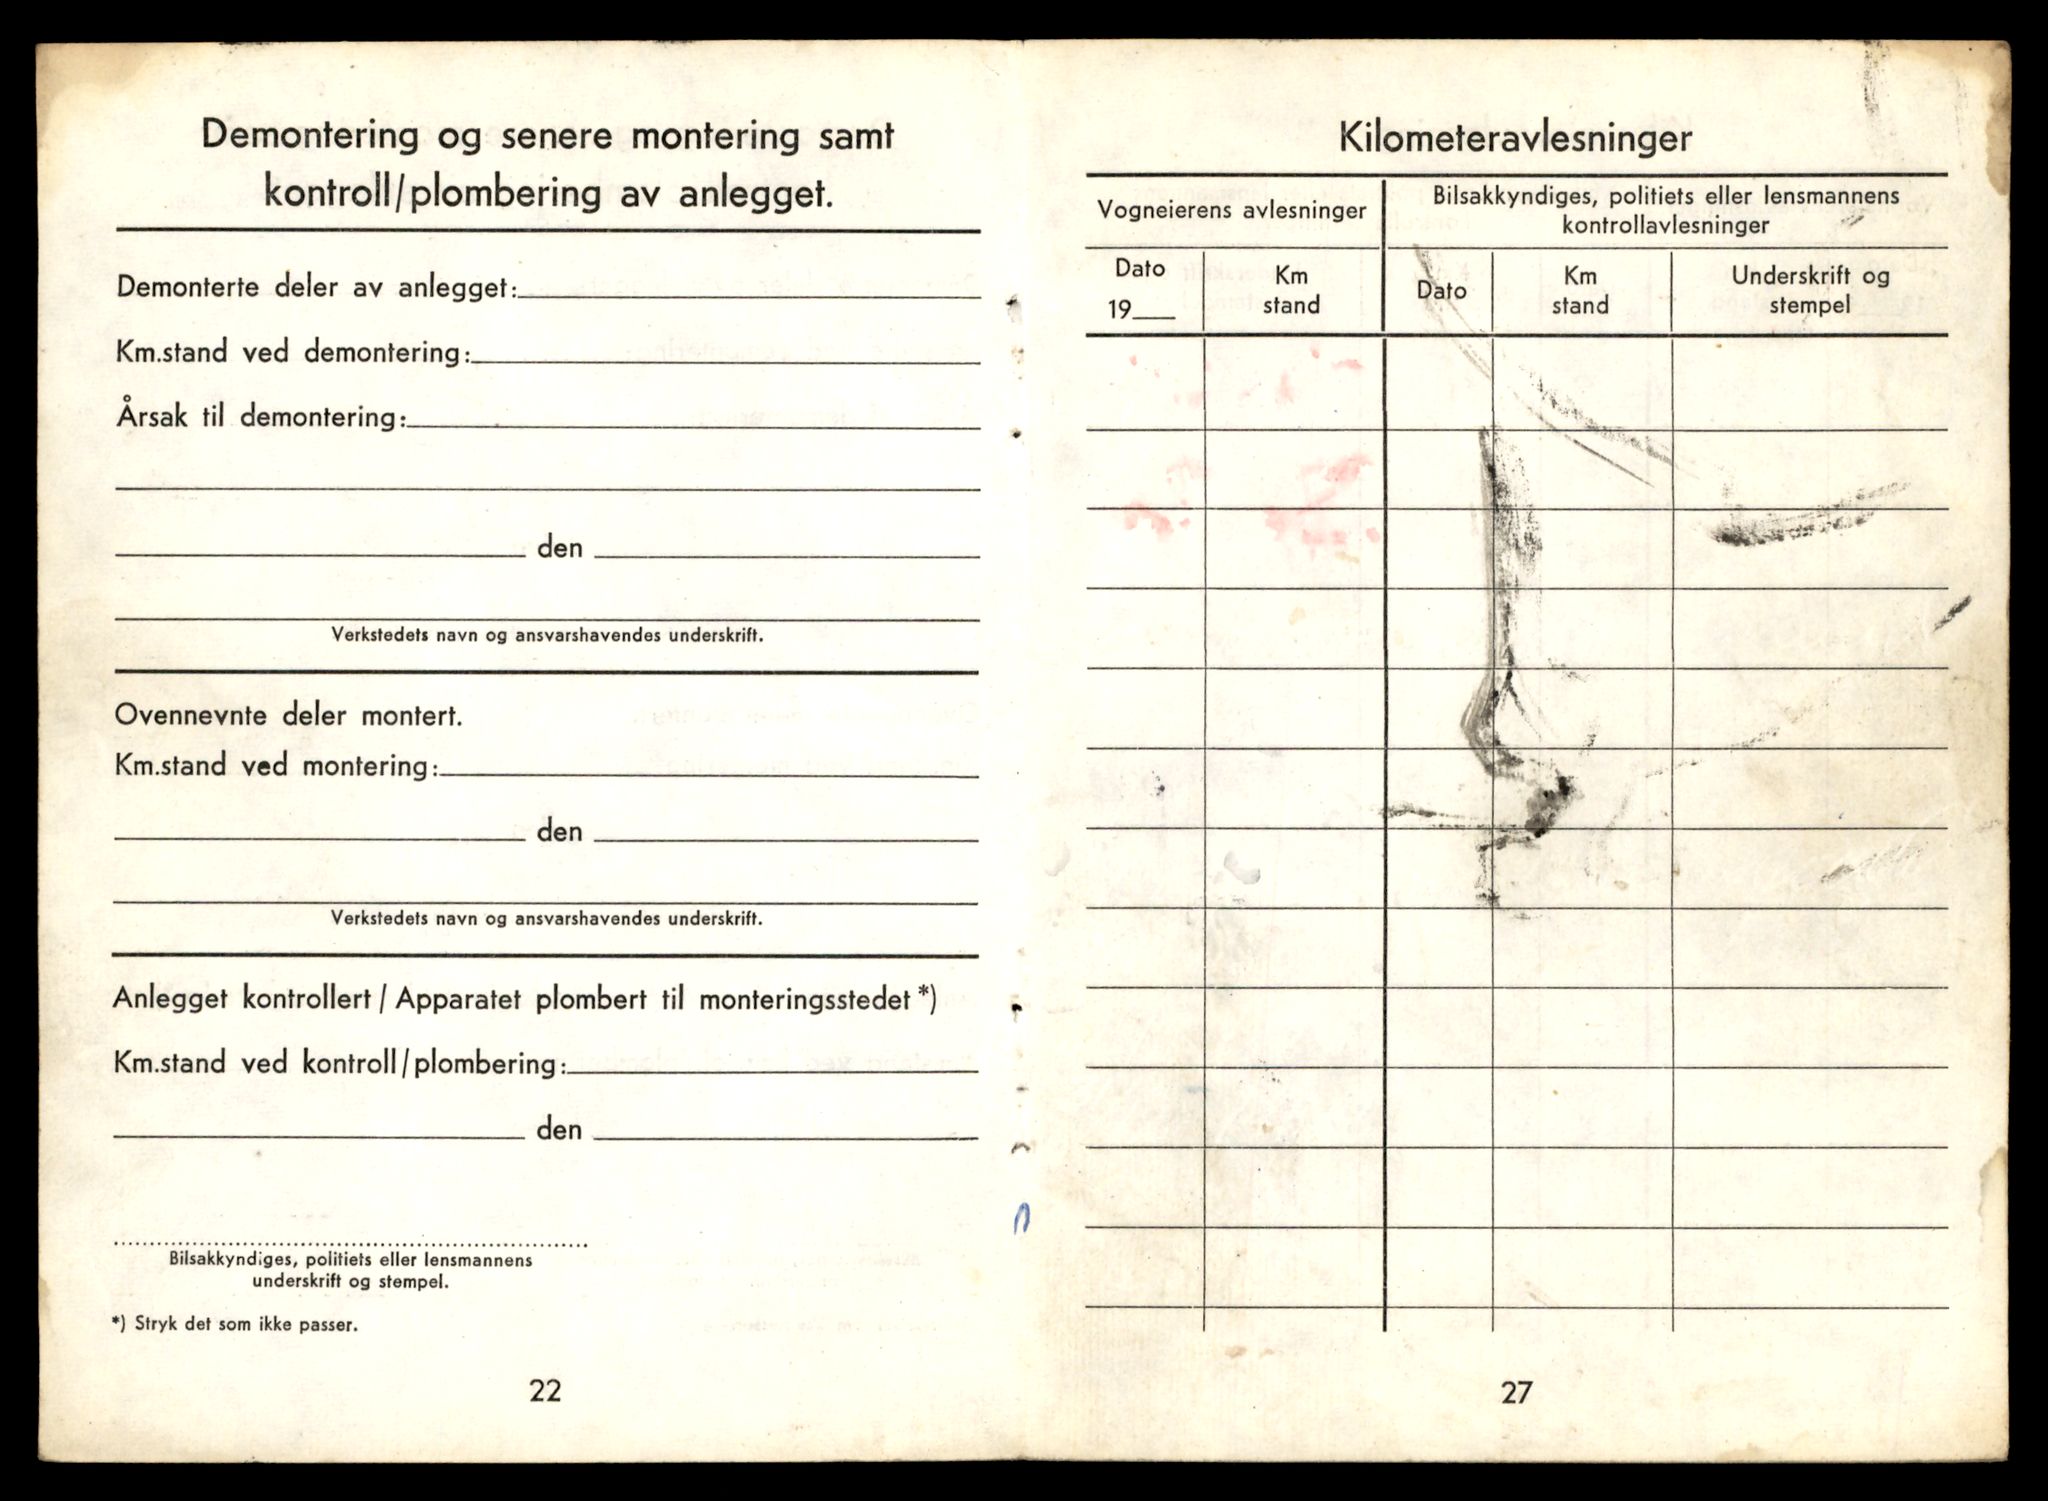 Demontering og senere montering samt
kontroll/plombering av anlegget.
Demonterte deler av anlegget:
Km.stand ved demontering:
Årsak til demontering:
den
Verkstedets navn og ansvarshavendes underskrift.
Ovennevnte deler montert.
Km.stand ved montering:
den
Verkstedets navn og ansvarshavendes underskrift.
Anlegget kontrollert / Apparatet plombert til monteringsstedet *)
Km.stand ved kontroll/plombering:
den
Bilsakkyndiges, politiets eller lensmannens
underskrift og stempel.
*) Stryk det som ikke passer.
22
Kilometeravlesninger
Vogneierens avlesninger
Bilsakkyndiges, politiets eller lensmannens
kontrollavlesninger
Dato
19
Km
stand
Dato
Km
stand
Underskrift og
stempel
27